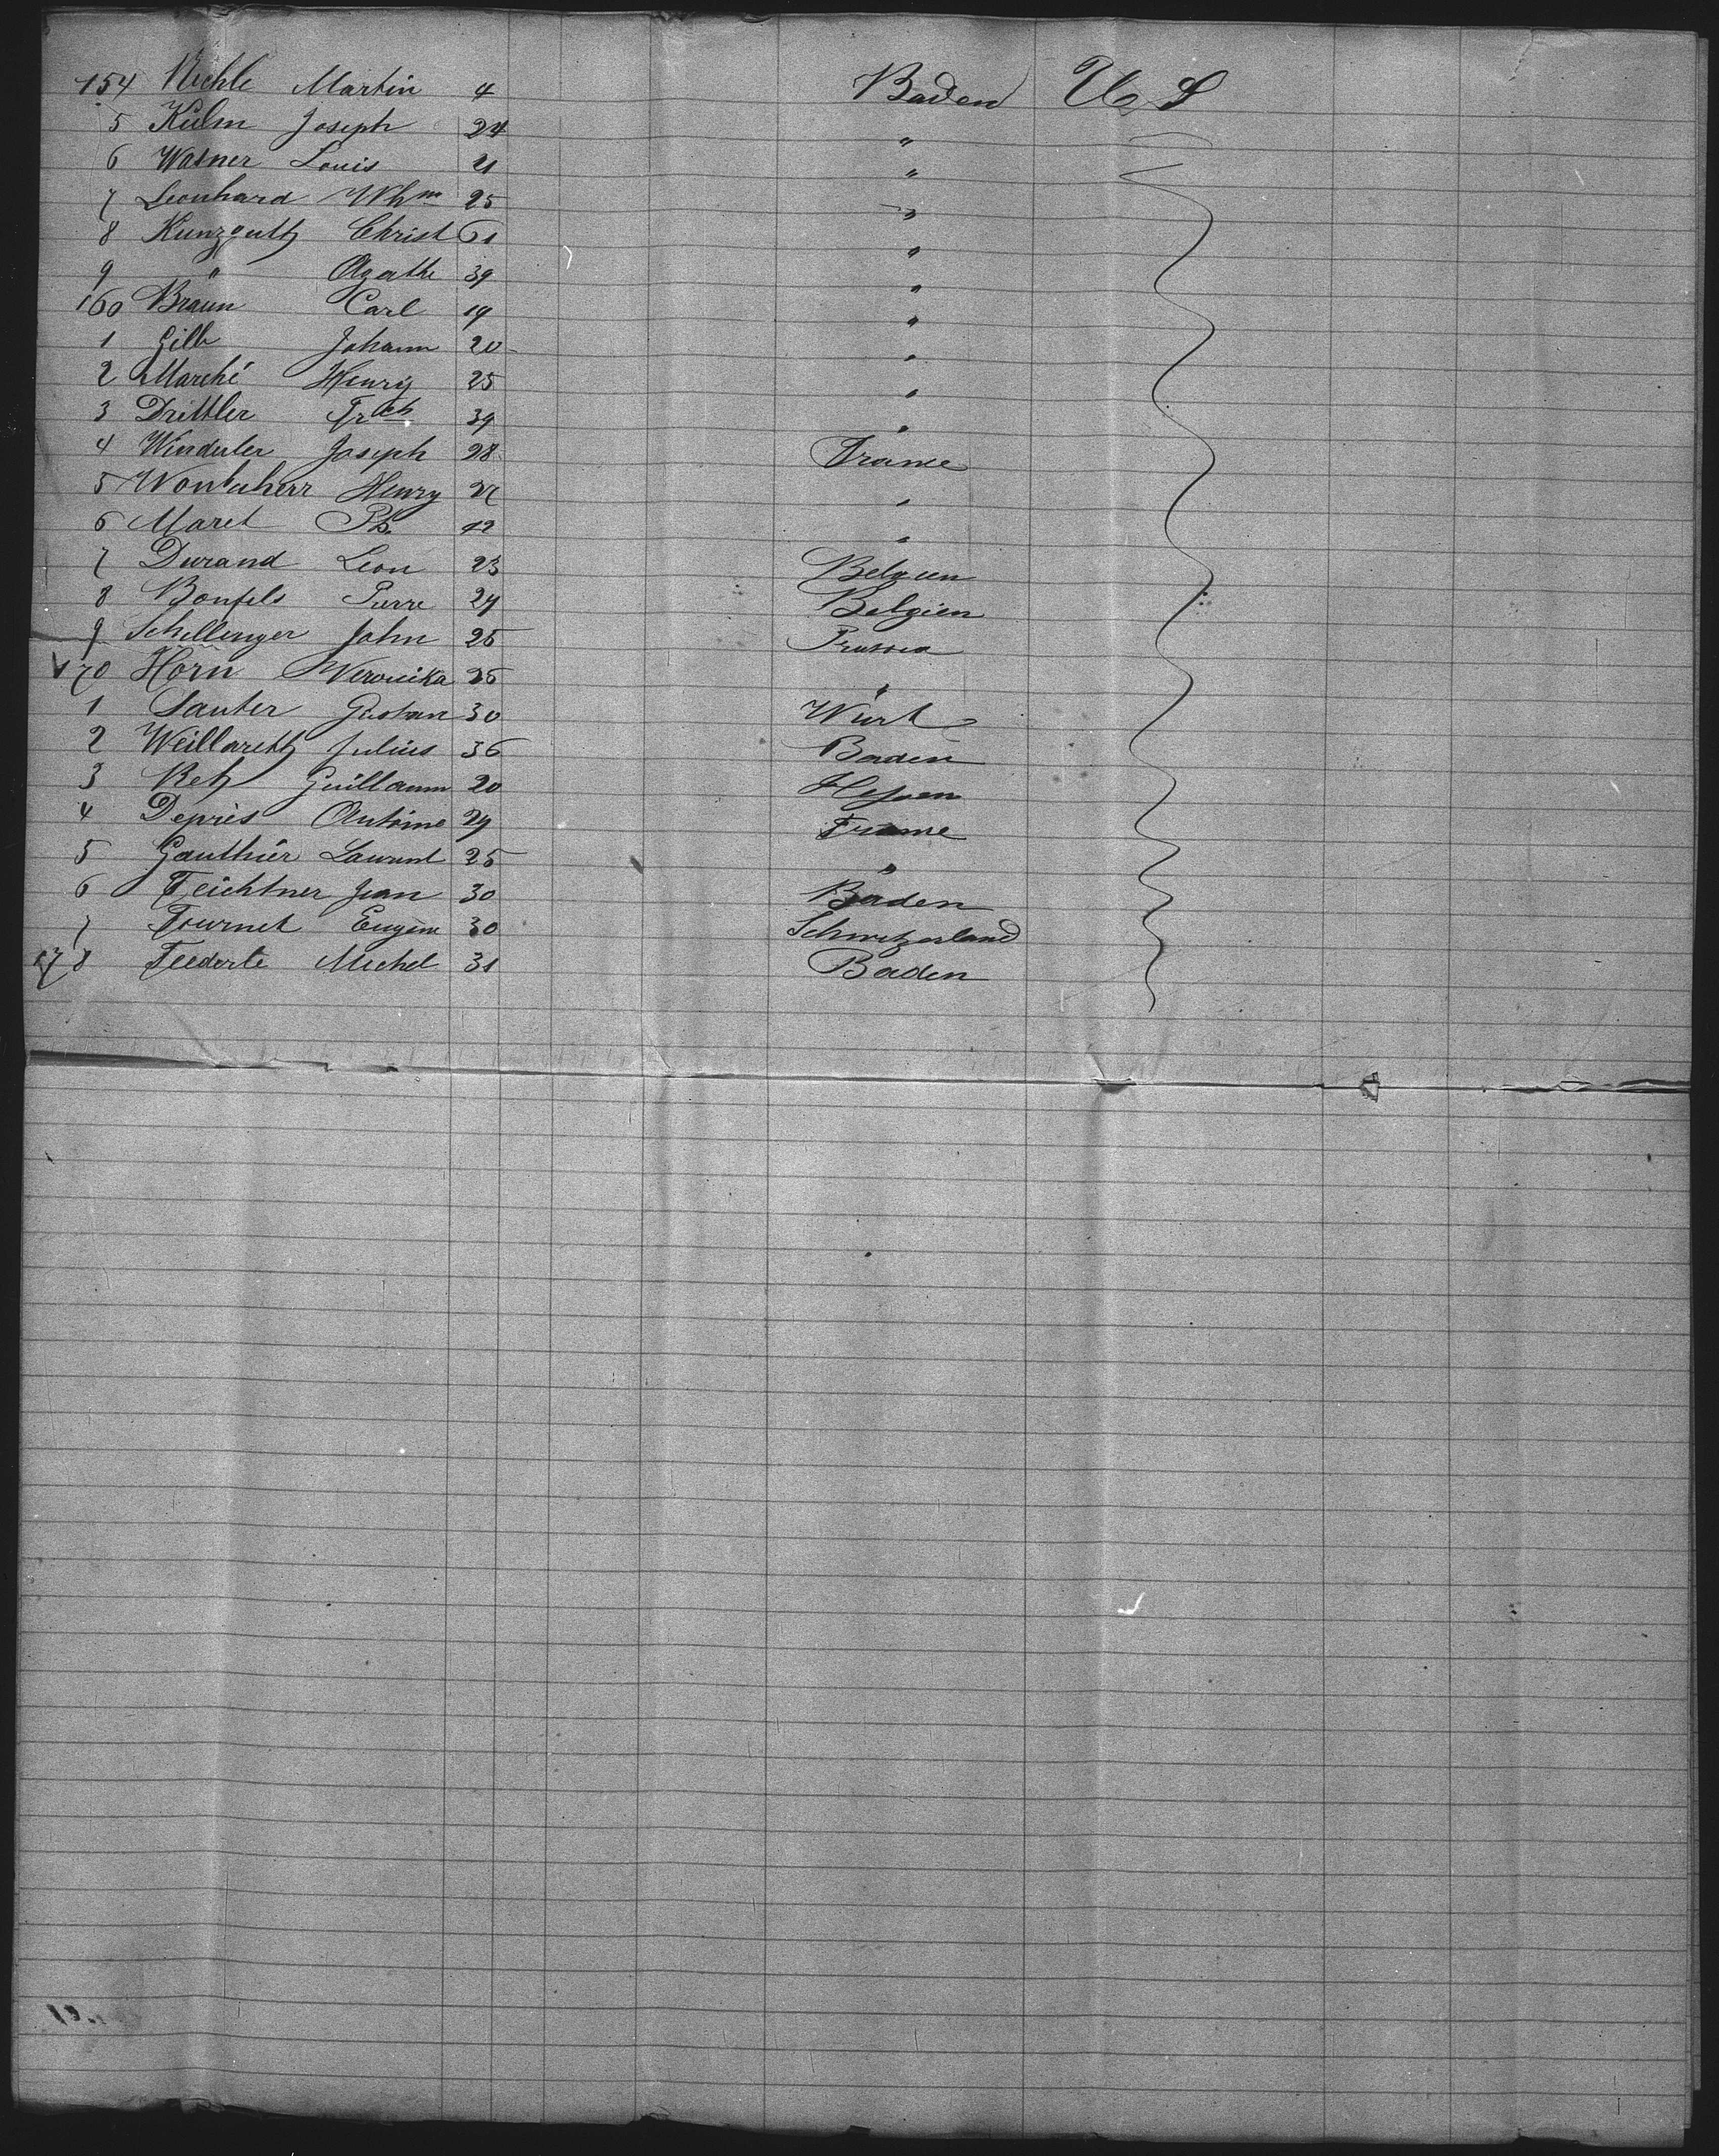 154 Michle Martin 4 Baden U S
5 Kulm Joseph 24 "
6 Wasner Louis 21 "
7 Leonhard Whm 25 "
8 Kunzguth Christ 61 "
9 " Agathe 39 "
160 Braun Carl 19 "
1 Gilb Johann 20 "
2 Marché Henry 25 "
3 Drittler Frch 39 "
4 Winduler Joseph 28 France
5 Henry "
6 Maret Ph. 42 "
7 Durand Leon 23 Belgien
8 Bonfils Pierre 24 Belgien
9 Schellenger John 25 Prussia
170 Horn Weronicka 26 "
1 Sauter Gustav 30 Wurt
2 Weillareth Julius 36 Baden
3 Reh Guillaum 20 Hessen
4 Depries Antoine 29 France
5 Gauthier Laurent 25 "
6 Feichtner Jean 30 Baden
7 Fournet Eugene 30 Schwitzerland
178 Feederle Michel 31 Baden